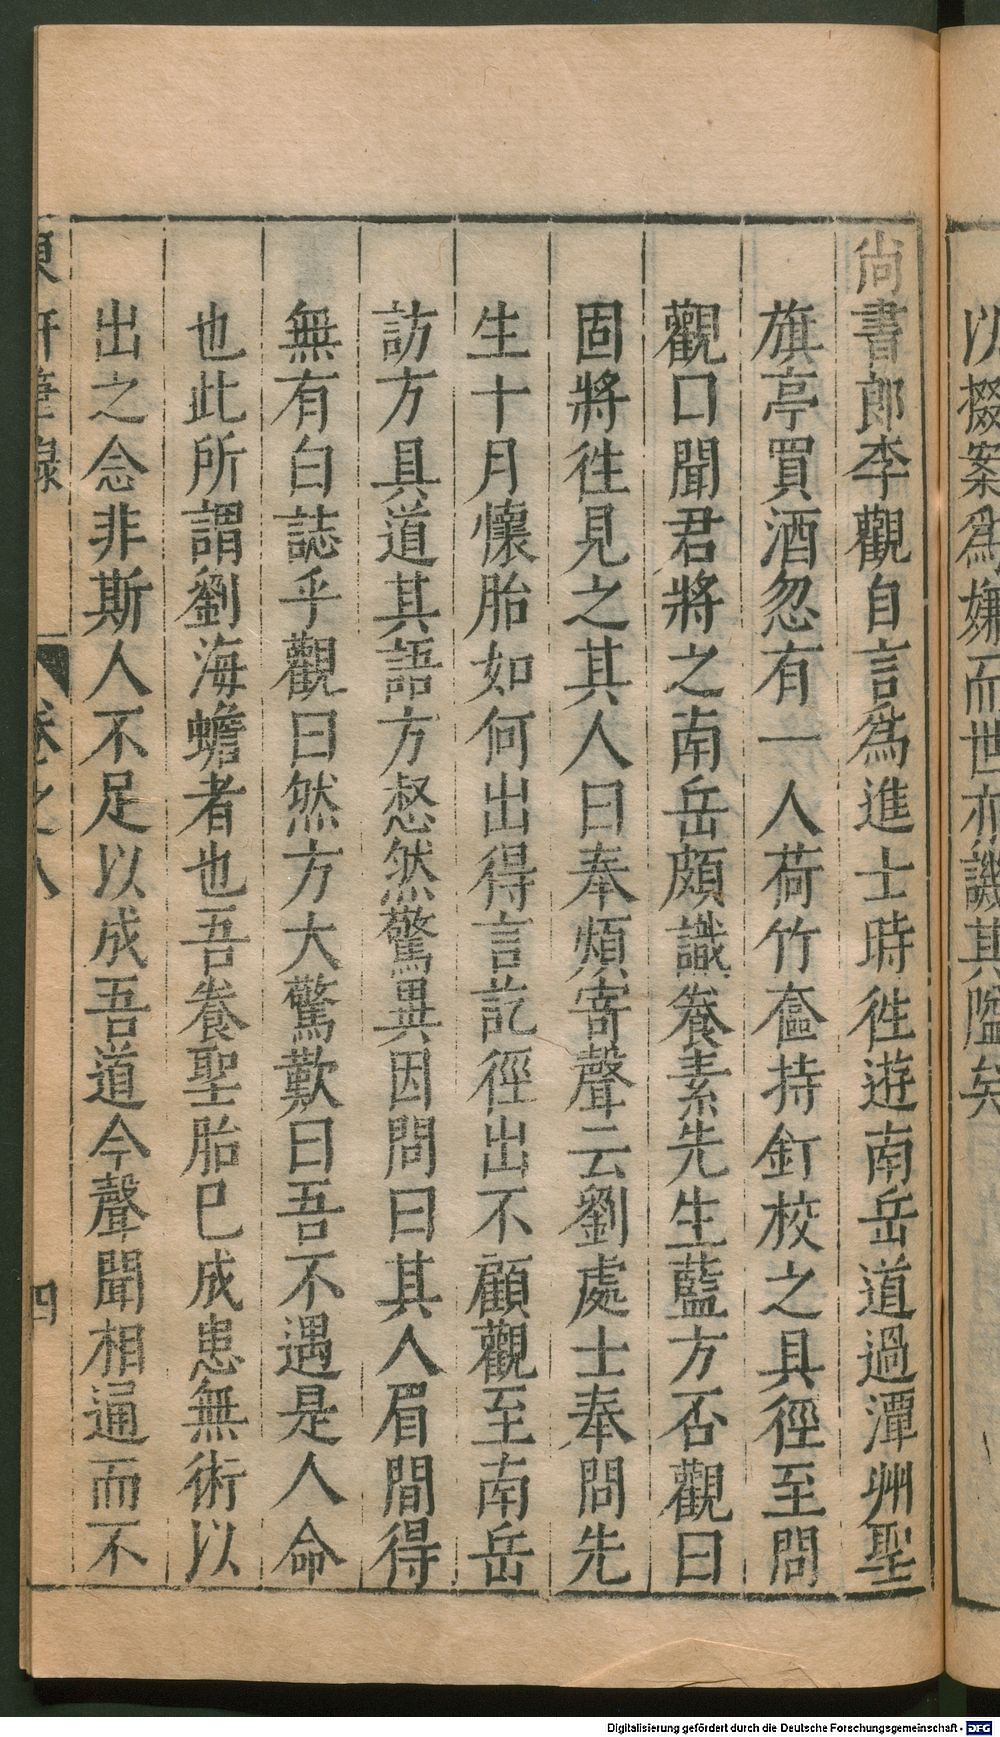 以掇案爲嫌而世亦譏其隘矣
尚書郎李觀自言爲進士時徃遊南岳道過潭州聖
旗亭買酒忽有一人荷竹奩持釘校之具徑至問
觀口聞君將之南岳頗識養素先生藍方否觀曰
固將徃見之其人曰奉煩寄聲云劉處士奉問先
生十月懷胎如何出得言訖徑出不顧觀至南岳
訪方具道其語方惄然驚異因問曰其人眉間得
無有白誌乎觀曰然方大驚歎曰吾不遇是人命
也此所謂劉海蟾者也吾養聖胎已成患無術以
出之念非斯人不足以成吾道今聲聞相通而不
東軒筆錄 卷之八 四
Digitalisierung gefördert durch die Deutsche Forschungsgemeinschaft - DFG